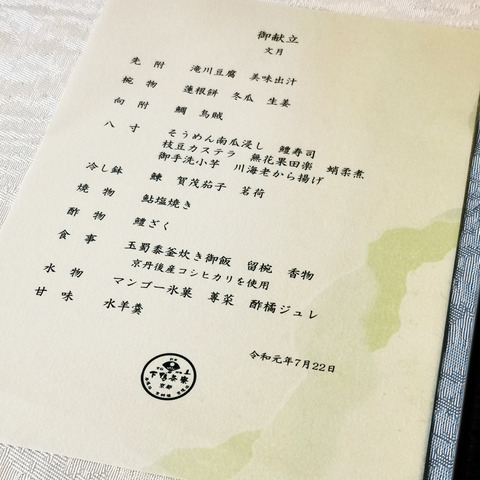 御献立
文月
先附 滝川豆腐 美味出汁
椀物 蓮根餅 冬瓜 生姜
向附 鯛 烏賊
八寸 そうめん南瓜浸し 鱧寿司
枝豆カステラ 無花果田楽 蛸柔煮
御手洗小芋 川海老から揚げ
冷し鉢 鰊 賀茂茄子 茗荷
焼物 鮎塩焼き
酢物 鱧ざく
食事 玉蜀黍釜炊き御飯 留椀 香物
京丹後産コシヒカリを使用
水物 マンゴー氷菓 蓴菜 酢橘ジュレ
甘味 水羊羹
令和元年7月22日
下鴨茶寮
京都